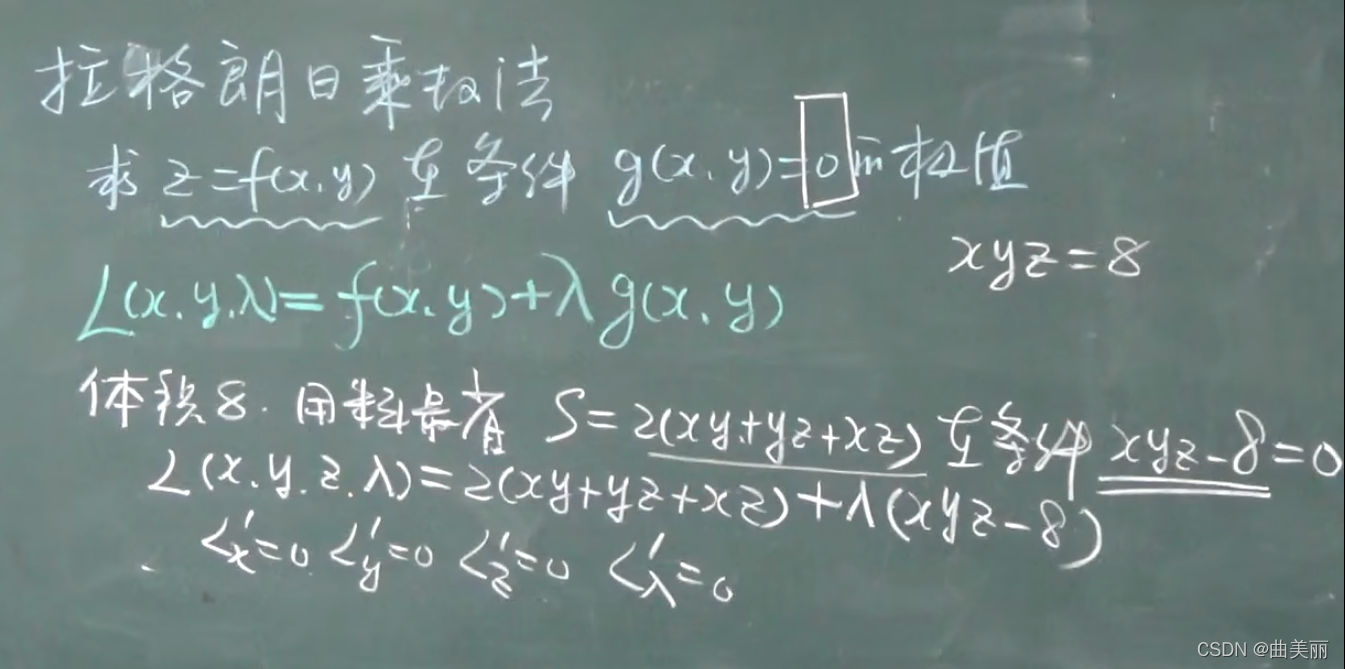 拉格朗日乘极法
求 z=f(x,y) 在条件 g(x,y)=0的极值
xyz=8
L(x,y,λ)=f(x,y)+λg(x,y)
体积8. 用料最省 S=2(xy+yz+xz) 在条件 xyz-8=0
L(x,y,z,λ)=2(xy+yz+xz)+λ(xyz-8)
L'x=0 L'y=0 L'z=0 L'λ=0
CSDN @曲美丽